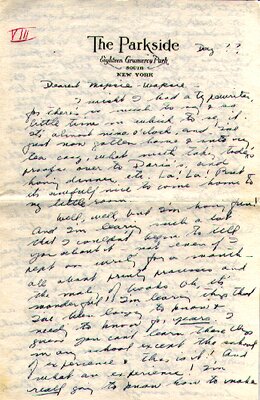 VIII
The Parkside
Eighteen Gramercy Park
SOUTH
NEW YORK
Day ??
Dearest
I wish I had a typewriter
for there's so much to say & so
little time in which to say it.
It's almost nine o'clock, and I've
just now gotten home & into my
easy, what with taking today's
proofs over to David's, and
having dinner, etc. La! La! But
it's awfully nice to come home to
my little room.
Well, well, but I'm having fun!
And I'm learning such a lot
that I couldn't begin to tell
you about it not even if I
kept on writing for a month—
all about printing processes and
the making of books. Oh, it's
wonderful! I'm learning things that
I've been longing to know &
need to know for years. I
guess you can't learn these things
in any school except the school
of experience & this is it! And
what an experience! I'm
really going to know how to make